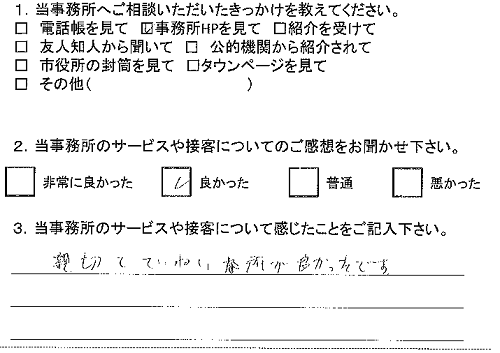 1. 当事務所へご相談いただいたきっかけを教えてください。
□ 電話帳を見て ☑事務所HPを見て □紹介を受けて
□ 友人知人から聞いて □ 公的機関から紹介されて
□ 市役所の封筒を見て □タウンページを見て
□ その他( )
2. 当事務所のサービスや接客についてのご感想をお聞かせ下さい。
□ 非常に良かった ☑ 良かった □ 普通 □ 悪かった
3. 当事務所のサービスや接客について感じたことをご記入下さい。
親切でていねい が良かったです